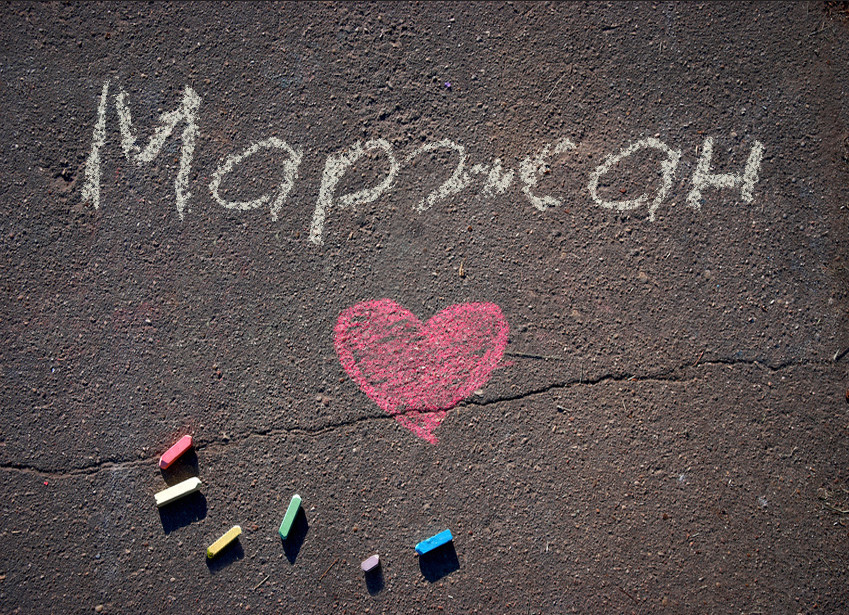 Маржан